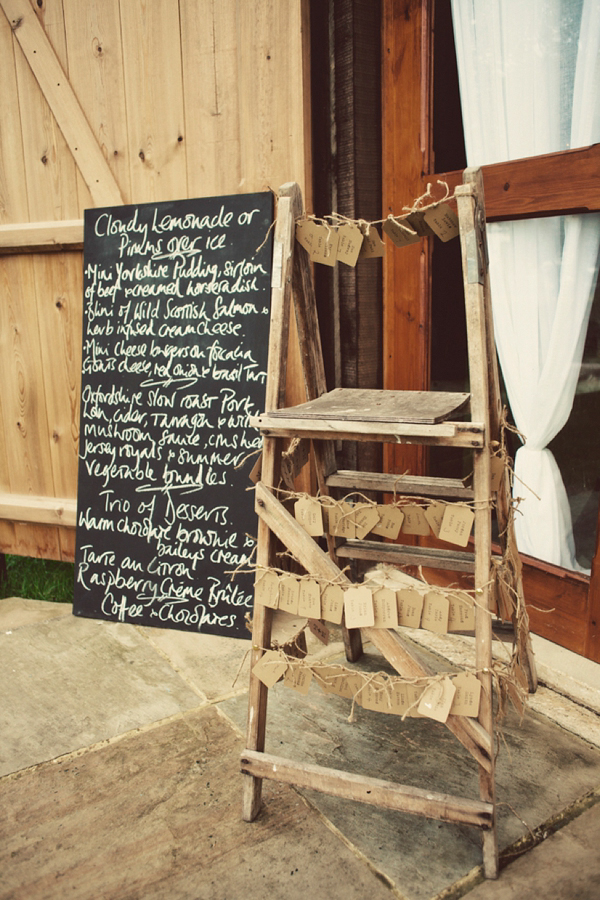 Cloudy Lemonade or
Pimms over ice
Mini Yorkshire Pudding, sirloin
of beef + creamed horseradish.
Blini of Wild Scottish Salmon &
herb infused cream cheese.
Mini Cheese burgers on focacia
Goats cheese, red onion & basil Tart
Oxfordshire Slow roast Pork
Loin, cider, Tarragon +
mushroom sauce, crushed
Jersey royals + summer
vegetable bundles.
Trio of Desserts.
Warm chocolate brownie &
baileys cream
Tarte au Citron
Raspberry Crème Brûlée
Coffee + Chocolates